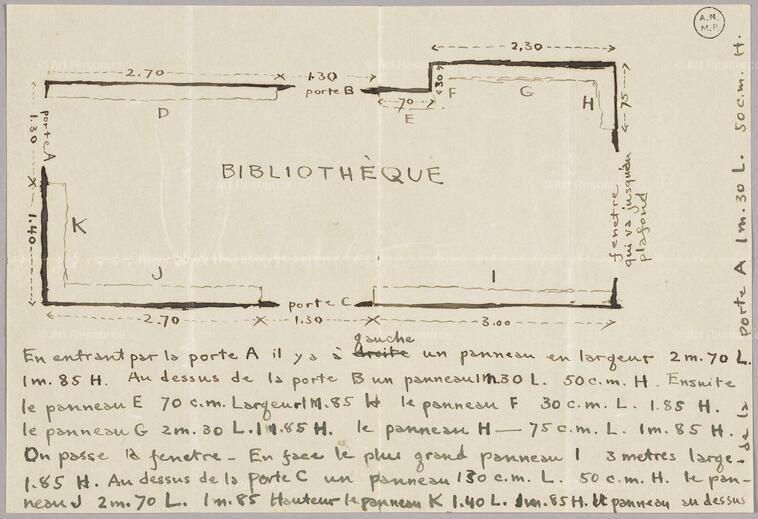 A.N.
M.P.
2,30
2.70
1.30
porte B
30
F
G
H
75
70
E
D
1.30
porte A
BIBLIOTHÈQUE
fenetre
qui va jusqu'au
plafond
K
1.40
J
I
porte C
2.70
1.30
3.00
gauche
En entrant par la porte A il y a à droite un panneau en largeur 2 m. 70 L.
1m. 85 H. Au dessus de la porte B un panneau 1M30 L. 50 c.m. H. Ensuite
le panneau E 70 c.m. Largeur 1M.85 H le panneau F 30 c.m. L. 1.85 H.
le panneau G 2 m. 30 L. 1M.85 H. le panneau H — 75 c.m. L. 1m. 85 H.
On passe la fenetre - En face le plus grand panneau I 3 mètres large -
1.85 H. Au dessus de la porte C un panneau 130 c.m. L. 50 c.m. H. le pan-
neau J 2 m. 70 L. 1m. 85 Hauteur le panneau K 1.40 L. 1m. 85 H. Le panneau au dessus
de la porte A 1m. 30 L. 50 c.m. H.